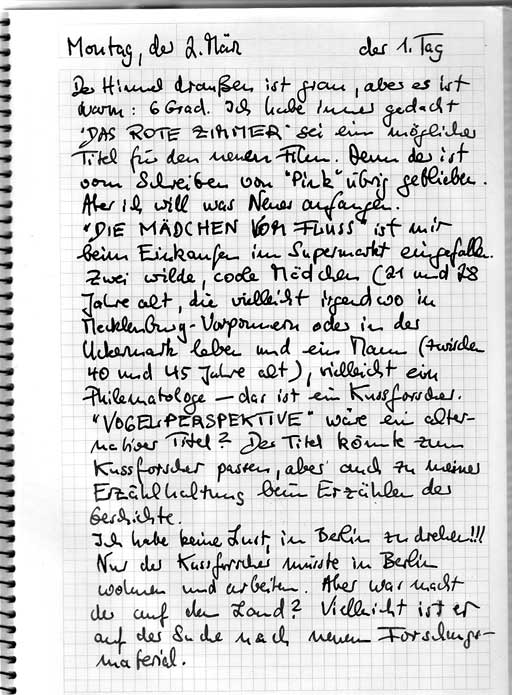 Montag, der 2. März der 1. Tag
Der Himmel draußen ist grau, aber es ist
warm: 6 Grad. Ich habe immer gedacht
"DAS ROTE ZIMMER" sei ein möglicher
Titel für den neuen Film. Denn der ist
vom Schreiben von "Pink" übrig geblieben.
Aber ich will was Neues anfangen.
"DIE MÄDCHEN VOM FLUSS" ist mir
beim Einkaufen im Supermarkt eingefallen.
Zwei wilde, coole Mädchen (21 und 28
Jahre alt, die vielleicht irgendwo in
Mecklenburg-Vorpommern oder in der
Uckermark leben und ein Mann (zwischen
40 und 45 Jahre alt), vielleicht ein
Philematologe – das ist ein Kussforscher.
"VOGELPERSPEKTIVE" wäre ein alter-
nativer Titel? Der Titel könnte zum
Kussforscher passen, aber auch zu meiner
Erzählhaltung beim Erzählen der
Geschichte.
Ich habe keine Lust, in Berlin zu drehen!!!
Nur der Kussforscher müsste in Berlin
wohnen und arbeiten. Aber was macht
der auf dem Land? Vielleicht ist er
auf der Suche nach neuem Forschungs-
material.